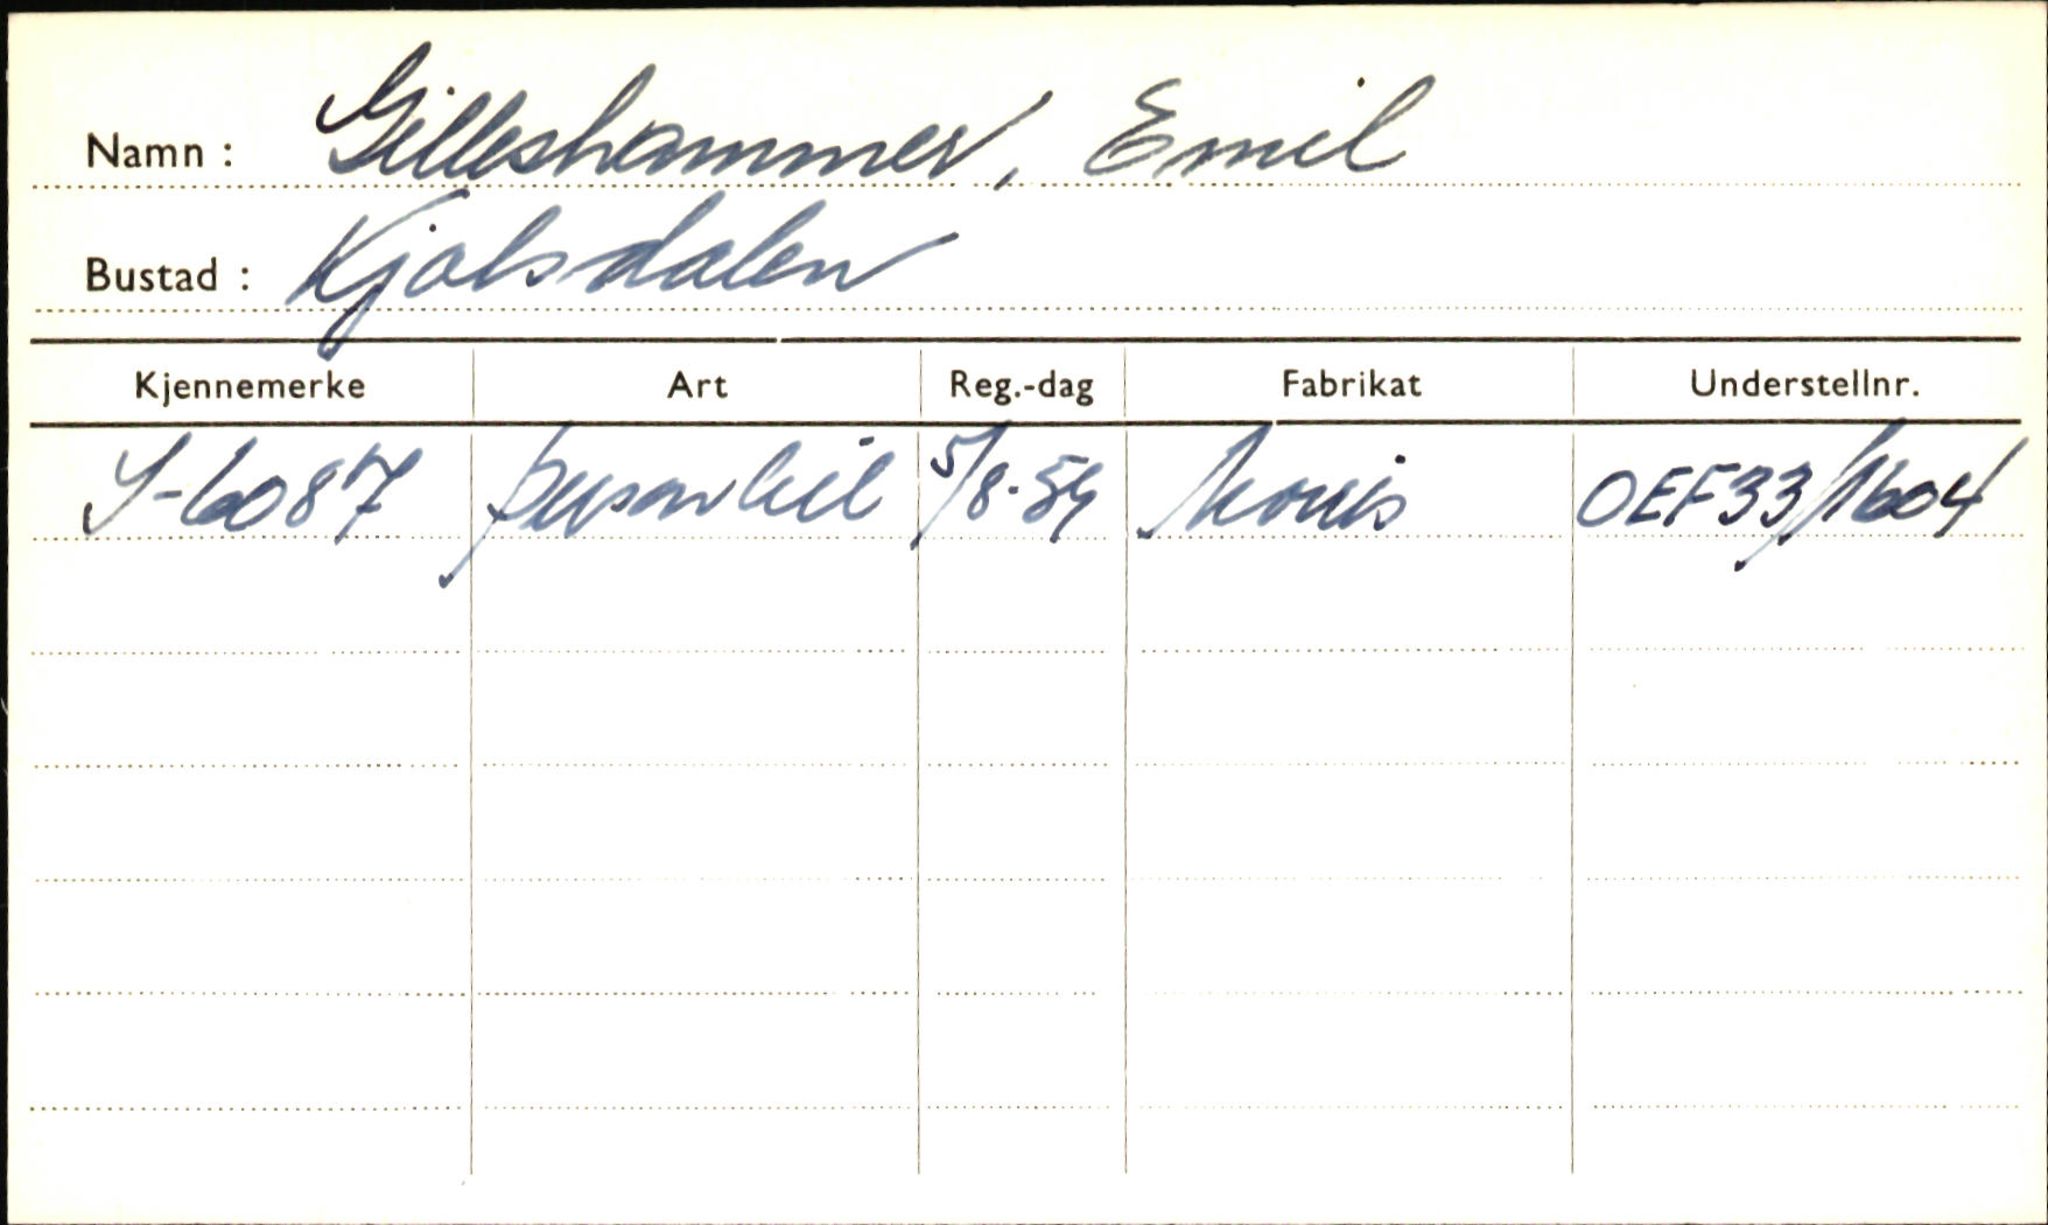 Namn : Gilleshammer, Emil
Bustad : Kjølsdalen
Kjennemerke Art Reg.-dag Fabrikat Understellnr.
S-6087 personbil 5/8-59 Morris OEF33/1604